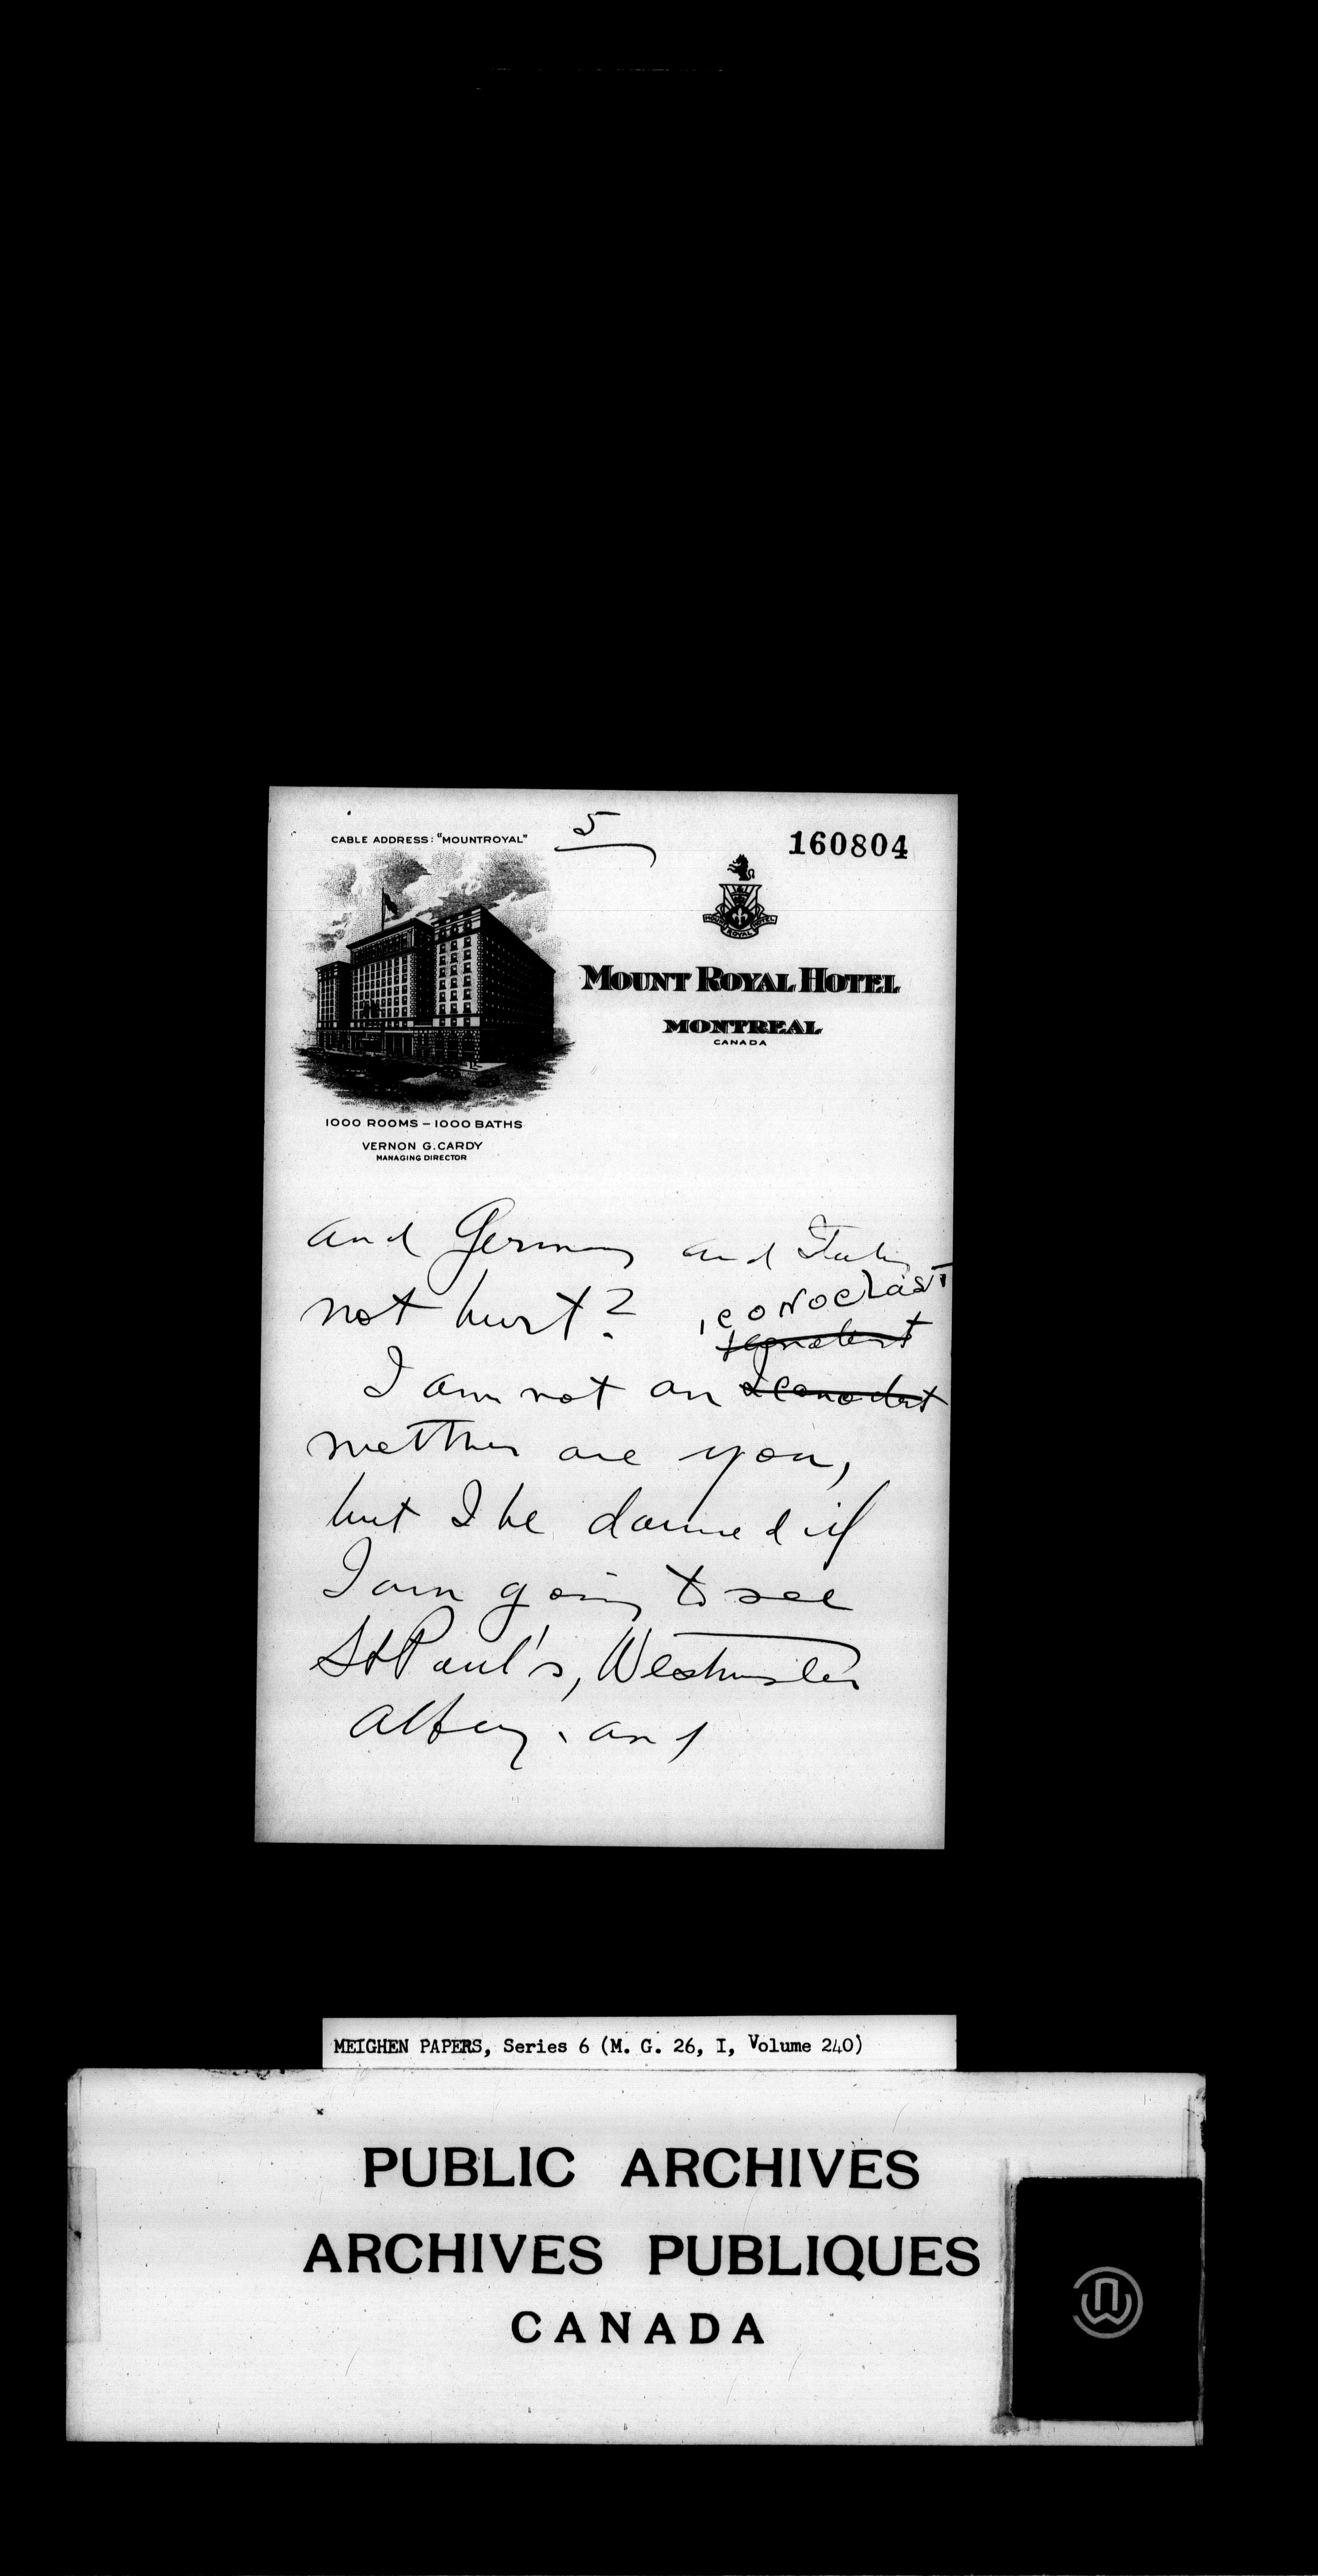 5
160804
CABLE ADDRESS: "MOUNTROYAL"
MOUNT ROYAL HOTEL
ROYAL
MOUNT ROYAL HOTEL
MONTREAL
CANADA
1000 ROOMS – 1000 BATHS
VERNON G. CARDY
MANAGING DIRECTOR
and Germany and Italy
not hurt? iconoclast
I am not an
neither are you,
but I be damned if
I am going to see
St Paul's, Westminster
Abbey, and
MEIGHEN PAPERS, Series 6 (M. G. 26, I, Volume 240)
PUBLIC ARCHIVES
ARCHIVES PUBLIQUES
CANADA